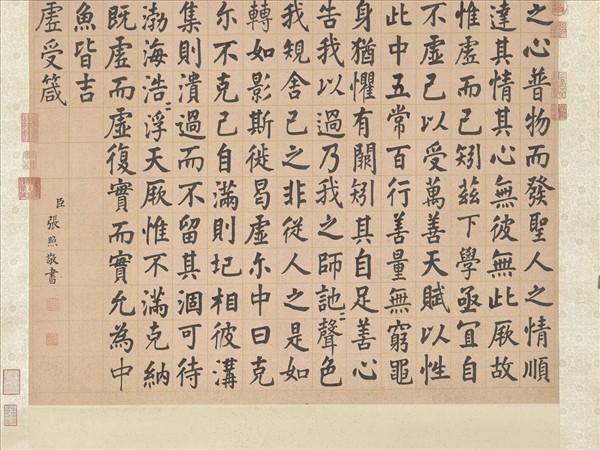 之心普物而發聖人之情順
達其情其心無彼無此厥故
惟虛而已矧茲下學亟宜自
不虛己以受萬善天賦以性
此中五常百行善量無窮黽
身猶懼有闕矧其自足善心
告我以過乃我之師訑〻聲色
我規舍己之非從人之是如
轉如影斯徙曷虛尔中曰克
尔不克己自滿則圮相彼溝
集則潰過而不留其涸可待
渤海浩〻浮天厥惟不滿克納
既虛而虛復實而實允為中
魚皆吉
虛受箴
臣張照敬書